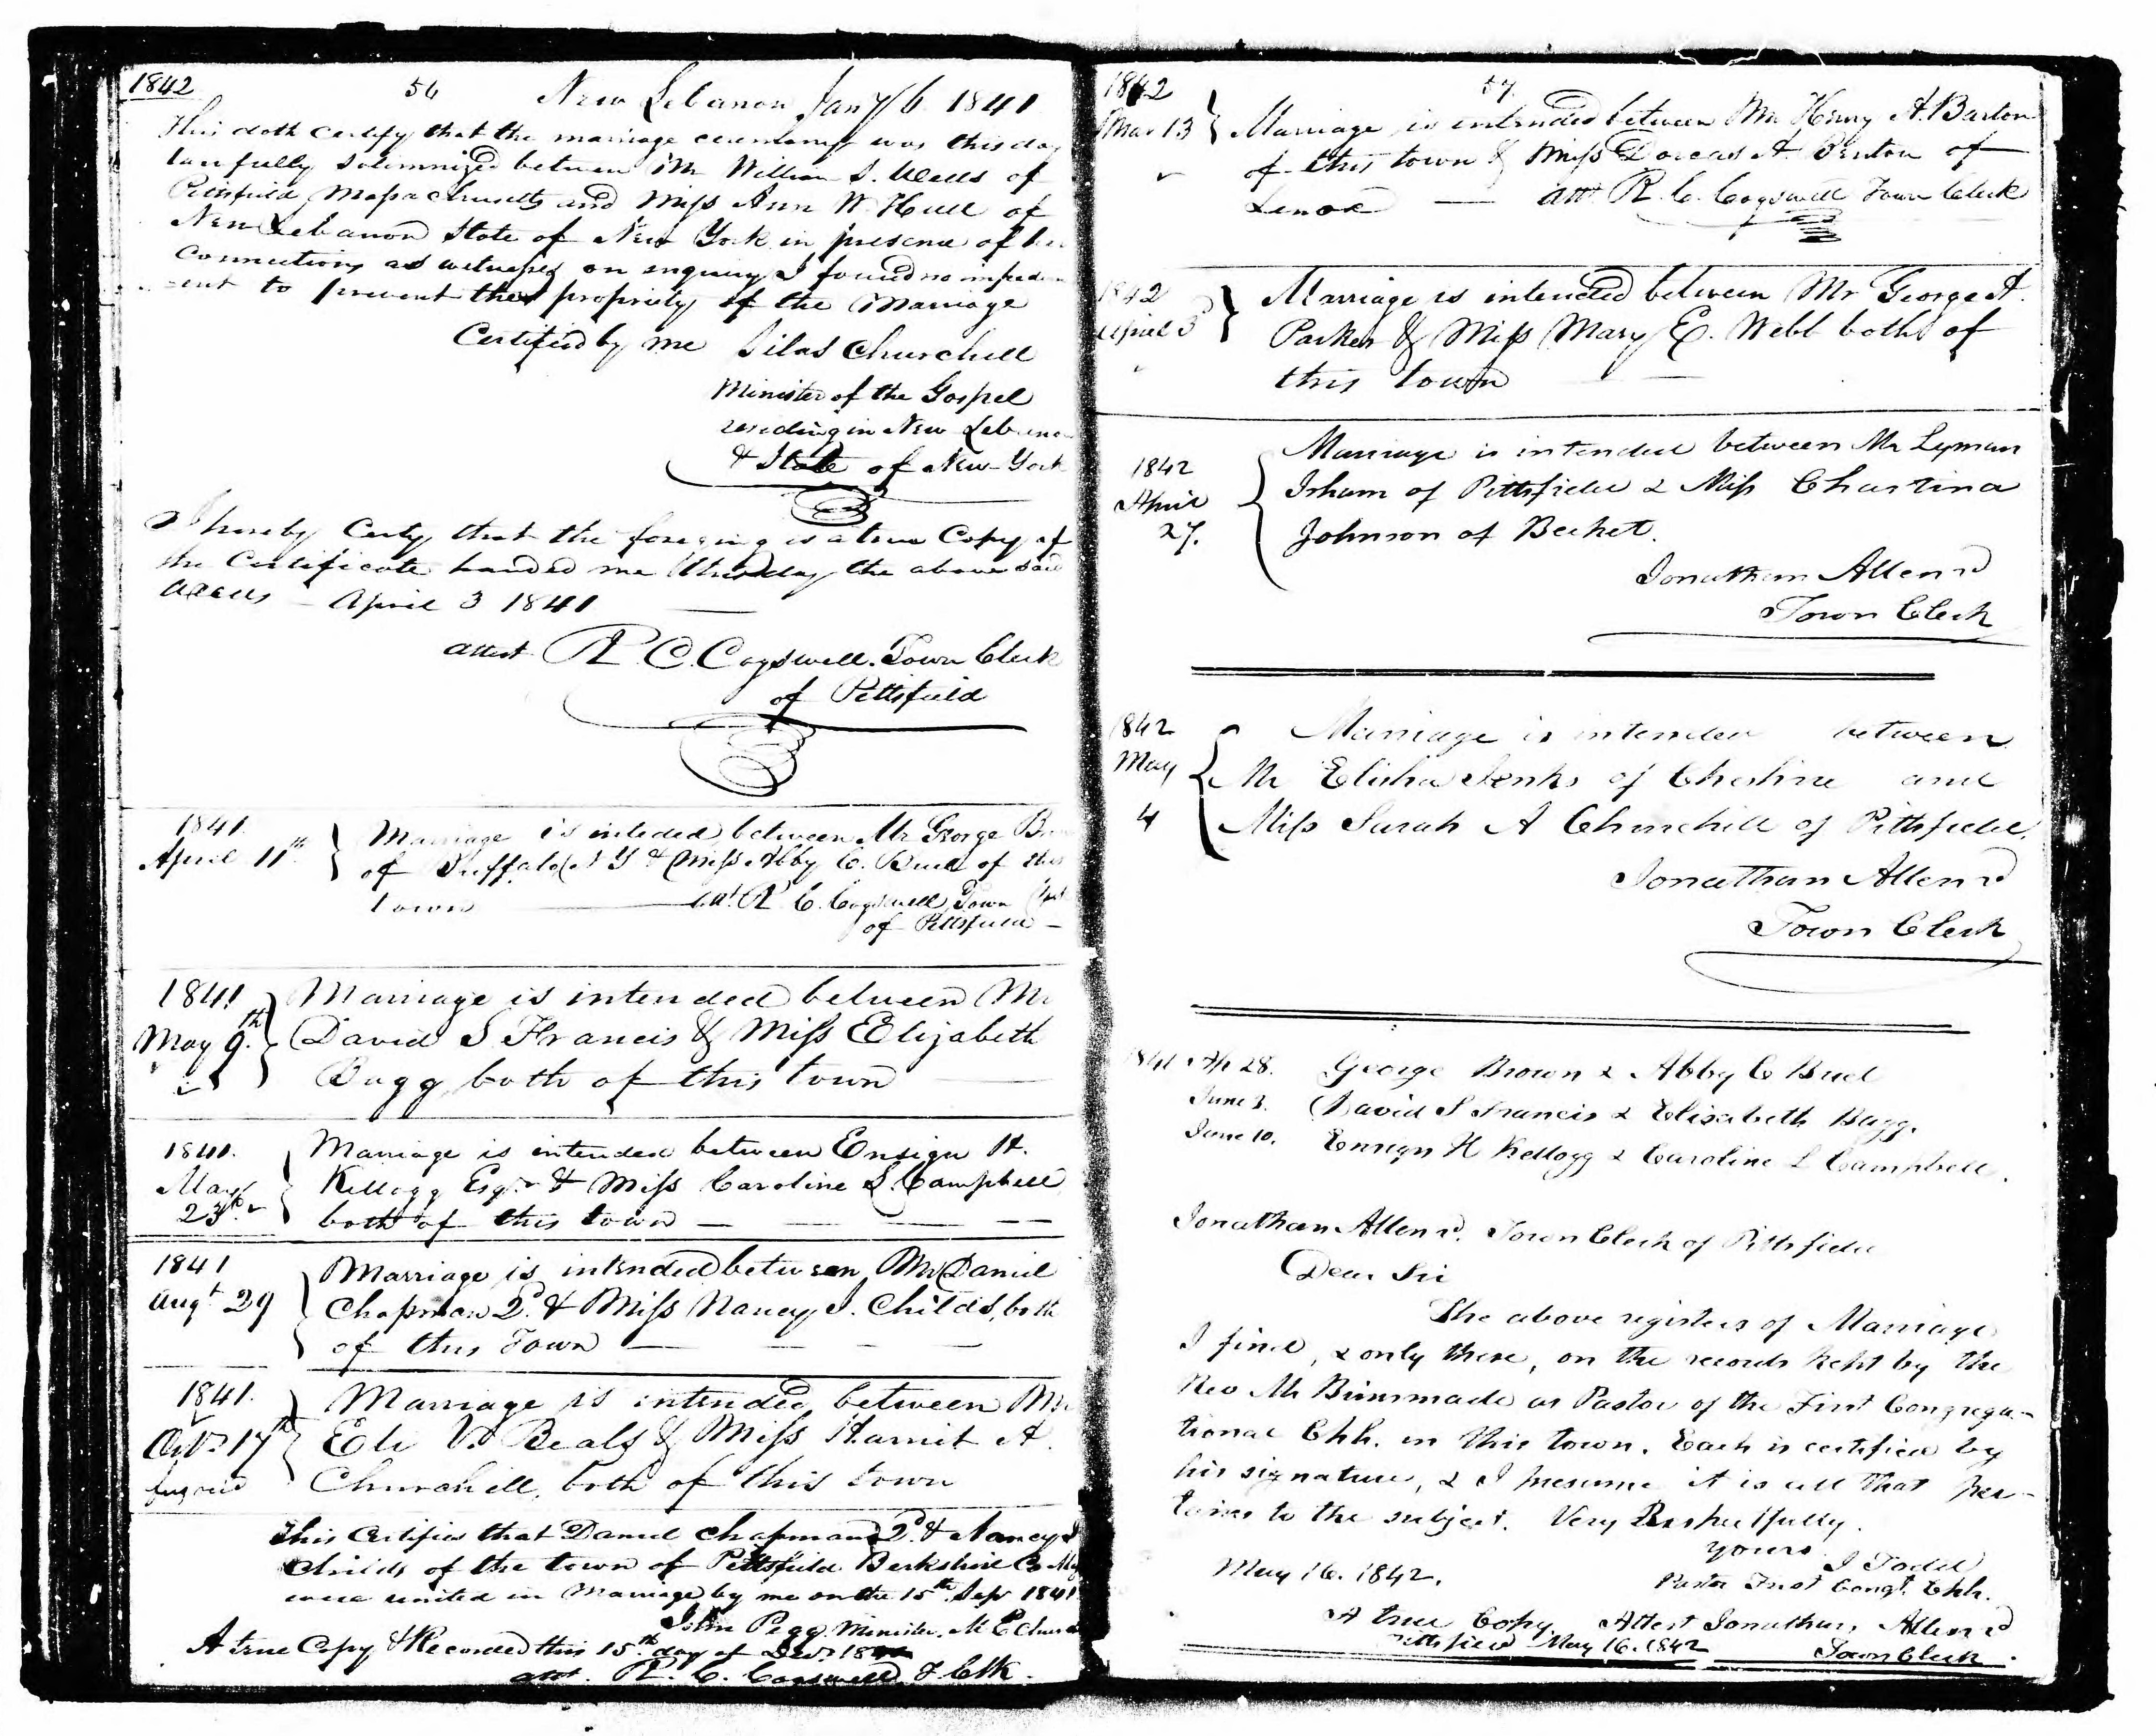 1842
56 New Lebanon Jany 6 1841
This doth certify that the marriage ceremony was this day
lawfully solemnized between Mr William S. Wells of
Pittsfield Massachusetts and Miss Ann W. Hull of
New Lebanon State of New York in presence of her
connections as witnesses on enquiry I found no impedem
ent to prevent the propriety of the Marriage
Certified by me Silas Churchill
Minister of the Gospel
residing in New Lebanon
& State of New York
I hereby Certy that the foregoing is a true Copy of
the Certificate handed me this day the above said
April 3 1841
attest R. C. Cogswell. Town Clerk
of Pittsfield
1841
April 11th
Marriage is inteded between Mr George
of Buffalo N Y & Miss Abby C. Buel of this
town att. R C. Cogswell Town Clerk
of Pittsfield
1841
May 9th
Marriage is intended between Mr
David S Francis & Miss Elizabeth
Bagg both of this town
1841.
May
23d
Marriage is intended between Ensign H.
Kellogg Esqr & Miss Caroline L. Campbell
both of this town
1841
Augt 29
Marriage is intended between Mr Daniel
Chapman 2d. & Miss Nancy J. Childs, both
of this Town
1841.
Octr 17th
Marriage is intended between Mr
Eli V. Beals & Miss Harriet A.
Churchill, both of this town
This Certifies that Daniel Chapman 2d. & Nancy J
Childs of the town of Pittsfield Berkshire Co
were united in Marriage by me on the 15th Sep 1841
John Pegg Minister. M E Church
A true Copy & Recorded this 15th day of Decr
att. R. C. Cogswell T. Clk.
1842
57.
Mar 13
Marriage is intended between Mr Henry A. Barton
of this town & Miss Dorcas A. Benton of
Lenox att R. C. Cogswell Town Clerk
1842
April 3d
Marriage is intended between Mr George A.
Parker & Miss Mary E. Webb both of
this town
1842
April
27.
Marriage is intended between Mr Lyman
Isham of Pittsfield & Miss Chastina
Johnson of Becket.
Jonathan Allen 2d
Town Clerk
1842
May
4
Marriage is intended between
Mr Elisha Jenks of Cheshire and
Miss Sarah A Churchill of Pittsfield.
Jonathan Allen 2d
Town Clerk
1841 Ap 28. George Brown & Abby C Buel
June 3. David S Francis & Elisabeth Bagg.
June 10. Ensign H Kellogg & Caroline L Campbell.
Jonathan Allen 2d. Town Clerk of Pittsfield
Dear Sir
The above registers of Marriage
I find, & only these, on the records kept by the
Rev Mr Brinsmade as Pastor of the First Congrega-
tional Chh. in this town. Each is certified by
his signature, & I presume it is all that per-
tains to the subject. Very Respectfully.
Yours
J Todd
May 16. 1842.
Pastor First Congl. Chh.
A true Copy. Attest Jonathan Allen 2d
Pittsfield May 16. 1842 Town Clerk.